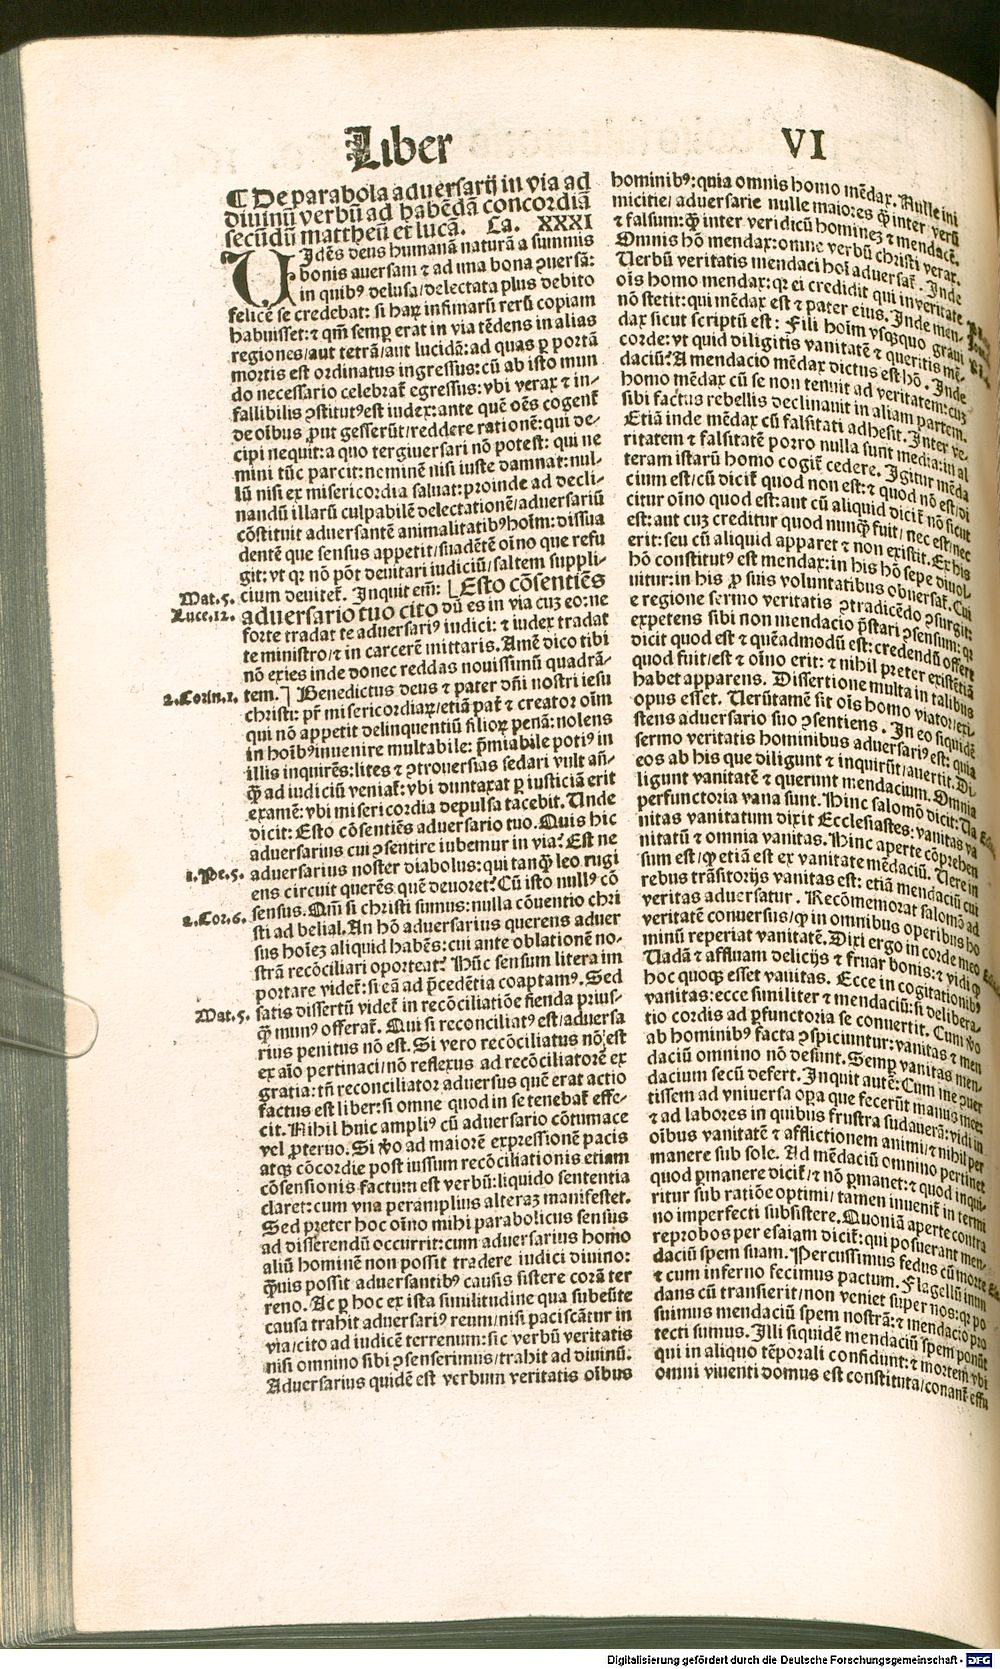 Liber VI
¶ De parabola aduersarij in via ad
diuinū verbū ad habēdā concordiā
secūdū mattheū et lucā. Ca. XXXI
VJdēs deus humanā naturā a summis
bonis auersam ⁊ ad una bona ꝯuersā:
in quibꝰ delusa/delectata plus debito
felicē se credebat: si haꝝ infimarū rerū copiam
habuisset: ⁊ qm̄ semꝑ erat in via tēdens in alias
regiones/aut tetrā/aut lucidā: ad quas ꝑ portā
mortis est ordinatus ingressus: cū ab isto mun
do necessario celebrat̄ egressus: vbi verax ⁊ in-
fallibilis ꝯstitutꝰ est iudex: ante quē oēs cogent̄
de oībus ꝓut gesserūt/reddere rationē: qui de-
cipi nequit: a quo tergiuersari nō potest: qui ne
mini tūc parcit: neminē nisi iuste damnat: nul-
lū nisi ex misericordia saluat: proinde ad decli-
nandū illarū culpabilē delectationē/aduersariū
cōstituit aduersantē animalitatibꝰ hoīm: dissua
dentē que sensus appetit/suadētē oīno que refu
git: vt qꝛ nō pōt deuitari iudiciū/saltem suppli-
Mat. 5. cium deuitet̄. Inquit em̄: ⌊Esto cōsentiēs
Luce. 12. aduersario tuo cito dū es in via cuꝫ eo: ne
forte tradat te aduersariꝰ iudici: ⁊ iudex tradat
te ministro/⁊ in carcerē mittaris. Amē dico tibi
nō exies inde donec reddas nouissimū quadrā-
2. Corin. 1. tem.⌉ Benedictus deus ⁊ pater dn̄i nostri iesu
christi: pr̄ misericordiaꝝ/etiā pat̄ ⁊ creator oīm
qui nō appetit delinquentiū filioꝝ penā: nolens
in hoībꝰ inuenire multabile: p̄miabile potiꝰ in
illis inquirēs: lites ⁊ ꝯtrouersias sedari vult añ-
ꝙ̄ ad iudiciū veniat̄: vbi duntaxat ꝑ iusticiā erit
examē: vbi misericordia depulsa tacebit. Unde
dicit: Esto cōsentiēs aduersario tuo. Quis hic
aduersarius cui ꝯsentire iubemur in via? Est ne
1. Pe. 5. aduersarius noster diabolus: qui tanꝙ̄ leo rugi
ens circuit querēs quē deuoret? Cū isto nullꝰ cō
2. Cor. 6. sensus. Qm̄ si christi sumus: nulla cōuentio chri
sti ad belial. An hō aduersarius querens aduer
sus hoīeꝫ aliquid habēs: cui ante oblationē no-
strā recōciliari oporteat? Hūc sensum litera im
portare videt̄: si eā ad p̄cedētia coaptamꝰ. Sed
Mat. 5. satis dissertū videt̄ in recōciliatiōe fienda prius-
ꝙ̄ munꝰ offerat̄. Qui si reconciliatꝰ est/aduersa
rius penitus nō est. Si vero recōciliatus nō est
ex aīo pertinaci/nō reflexus ad recōciliatorē ex
gratia: tn̄ reconciliator aduersus quē erat actio
factus est liber: si omne quod in se tenebat̄ effe-
cit. Nihil huic ampliꝰ cū aduersario cōtumace
vel ꝓteruo. Si v̄o ad maiorē expressionē pacis
atqꝫ cōcordie post iussum recōciliationis etiam
cōsensionis factum est verbū: liquido sententia
claret: cum vna peramplius alteraꝫ manifestet.
Sed preter hoc oīno mihi parabolicus sensus
ad disserendū occurrit: cum aduersarius homo
aliū hominē non possit tradere iudici diuino:
ꝙ̄uis possit aduersantibꝰ causis sistere corā ter
reno. Ac ꝑ hoc ex ista similitudine qua subeūte
causa trahit aduersariꝰ reum/nisi paciscātur in
via/cito ad iudicē terrenum: sic verbū veritatis
nisi omnino sibi ꝯsenserimus/trahit ad diuinū.
Aduersarius quidē est verbum veritatis oībus
hominibꝰ: quia omnis homo mēdax. Nulle ini
micitie/aduersarie nulle maiores ꝙ̄ inter verū
⁊ falsum: ꝙ̄ inter veridicū homineꝫ ⁊ mendacē.
Omnis hō mendax: omne verbū christi verax.
Uerbū veritatis mendaci hoī aduersat̄. Inde
oīs homo mendax: qꝛ ei credidit qui in veritate
nō stetit: qui mēdax est ⁊ pater eius. Inde men-
dax sicut scriptū est: Fili hoīm vsqꝫquo graui
corde: vt quid diligitis vanitatē ⁊ queritis mē-
daciū? A mendacio mēdax dictus est hō. Inde
homo mēdax cū se non tenuit ad veritatem: cuꝫ
sibi factus rebellis declinauit in aliam partem.
Etiā inde mēdax cū falsitati adhesit. Inter ve-
ritatem ⁊ falsitatē porro nulla sunt media: in al
teram istarū homo cogit̄ cedere. Igitur mēda
cium est/cū dicit̄ quod non est: ⁊ quod nō est/di
citur oīno quod est: aut cū aliquid dicit̄ nō sicut
est: aut cuꝫ creditur quod nunꝙ̄ fuit/nec est/nec
erit: seu cū aliquid apparet ⁊ non existit. Ex his
hō constitutꝰ est mendax: in his hō sepe diuol-
uitur: in his ꝓ suis voluntatibus obuersat̄. Cui
e regione sermo veritatis ꝯtradicēdo ꝯsurgit:
expetens sibi non mendacio p̄stari ꝯsensum: qꝛ
dicit quod est ⁊ quēadmodū est: credendū offert
quod fuit/est ⁊ oīno erit: ⁊ nihil preter existētiā
habet apparens. Dissertione multa in talibus
opus esset. Uerūtamē sit oīs homo viator/exi-
stens aduersario suo ꝯsentiens. In eo siquidē
sermo veritatis hominibus aduersariꝰ est: quia
eos ab his que diligunt ⁊ inquirūt/auertit. Di-
ligunt vanitatē ⁊ querunt mendacium. Omnia
perfunctoria vana sunt. Hinc salomō dicit: Ua
nitas vanitatum dixit Ecclesiastes: vanitas va
nitatū ⁊ omnia vanitas. Hinc aperte cōprehen
sum est/ꝙ etiā est ex vanitate mēdaciū. Uere in
rebus trāsitorijs vanitas est: etiā mendaciū cui
veritas aduersatur. Recōmemorat salomō ad
veritatē conuersus/ꝙ in omnibus operibus ho
minū reperiat vanitatē. Dixi ergo in corde meo
Uadā ⁊ affluam delicijs ⁊ fruar bonis: ⁊ vidi ꝙ
hoc quoqꝫ esset vanitas. Ecce in cogitationibꝰ
vanitas: ecce similiter ⁊ mendaciū: si delibera-
tio cordis ad ꝑfunctoria se conuertit. Cum v̄o
ab hominibꝰ facta ꝯspiciuntur: vanitas ⁊ men
daciū omnino nō desunt. Semꝑ vanitas men-
dacium secū defert. Inquit autē: Cum me ꝯuer
tissem ad vniuersa oꝑa que fecerūt manus mee:
⁊ ad labores in quibus frustra sudauerā: vidi in
oībus vanitatē ⁊ afflictionem animi/⁊ nihil per
manere sub sole. Ad mēdaciū omnino pertinet
quod ꝑmanere dicit̄/⁊ nō ꝑmanet: ⁊ quod inqui-
ritur sub ratiōe optimi/tamen inuenit̄ in termi
no imperfecti subsistere. Quoniā aperte contra
reprobos per esaiam dicit̄: qui posuerant men-
daciū spem suam. Percussimus fedus cū morte
⁊ cum inferno fecimus pactum. Flagellū inun
dans cū transierit/non veniet super nos: qꝛ po
suimus mendaciū spem nostrā: ⁊ mendacio pro
tecti sumus. Illi siquidē mendaciū spem ponūt
qui in aliquo tēporali confidunt: ⁊ mortem vbi
omni viuenti domus est constituta/conant̄ effu
Digitalisierung gefördert durch die Deutsche Forschungsgemeinschaft - DFG